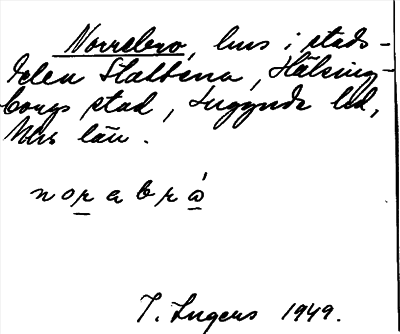 Norrebro, hus i stads-
delen Slottena, Hälsing-
borgs stad, Luggude hd,
Mlhs län.
norabrò
I. Ingers 1949.